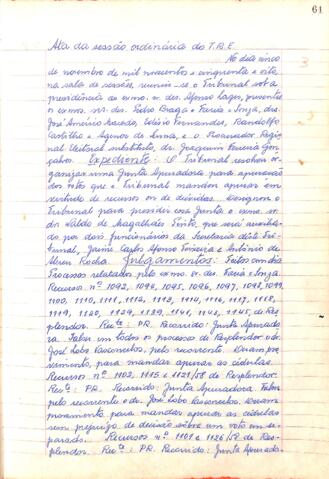 61
Ata da sessão ordinária do T.R.E.
No dia cinco
de novembro de mil novecentos e cinquenta e oito,
na sala de sessões, reuniu-se o Tribunal sob a
presidência do exmo. sr. des. Afonso Lages, presentes
os exmos. srs. des. Pedro Braga e Faria e Souza, drs.
José Américo Macedo, Célio Fernandes, Randolfo
Castilho e Agenor de Senna, e o Procurador Regio
nal Eleitoral substituto, dr. Joaquim Ferreira Gon
çalves. Expediente: O Tribunal resolveu or
ganizar uma Junta Apuradora, para apuração
dos votos que o Tribunal mandou apurar em
virtude de recursos ou de dúvidas. Designou o
Tribunal para presidir essa Junta o exmo. sr.
dr. Valdo de Magalhães Pinto, que será auxilia
do por dois funcionários da Secretaria deste Tri
bunal, Jaime Carlos Afonso Teixeira e Antônio de
Abreu Rocha. Julgamentos: Feitos em dia
Processos relatados pelo exmo. sr. des. Faria e Souza.
Recursos nº 1092, 1094, 1095, 1096, 1097, 1098, 1099,
1100, 1110, 1111, 1112, 1113, 1114, 1116, 1117, 1118,
1119, 1120, 1124, 1129, 1139, 1141, 1142, 1145, de Res
plendor. Recte: PR. Recorrido: Junta Apurado
ra. Falou em todos os processos de Resplendor o dr.
José Lobo Vasconcelos, pelo recorrente. Deram pro
vimento, para mandar apurar as cédulas.
Recursos nº 1102, 1115 e 1121/58 de Resplendor.
Recte: PR. Recorrido: Junta Apuradora. Falou
pelo recorrente o dr. José Lobo Vasconcelos. Deram
provimento para mandar apurar as cédulas
sem prejuízo de decisão sobre um voto em se
parado. Recursos nº 1101 e 1126/58 de Res
plendor. Recte: PR. Recorrido: Junta Apurado.